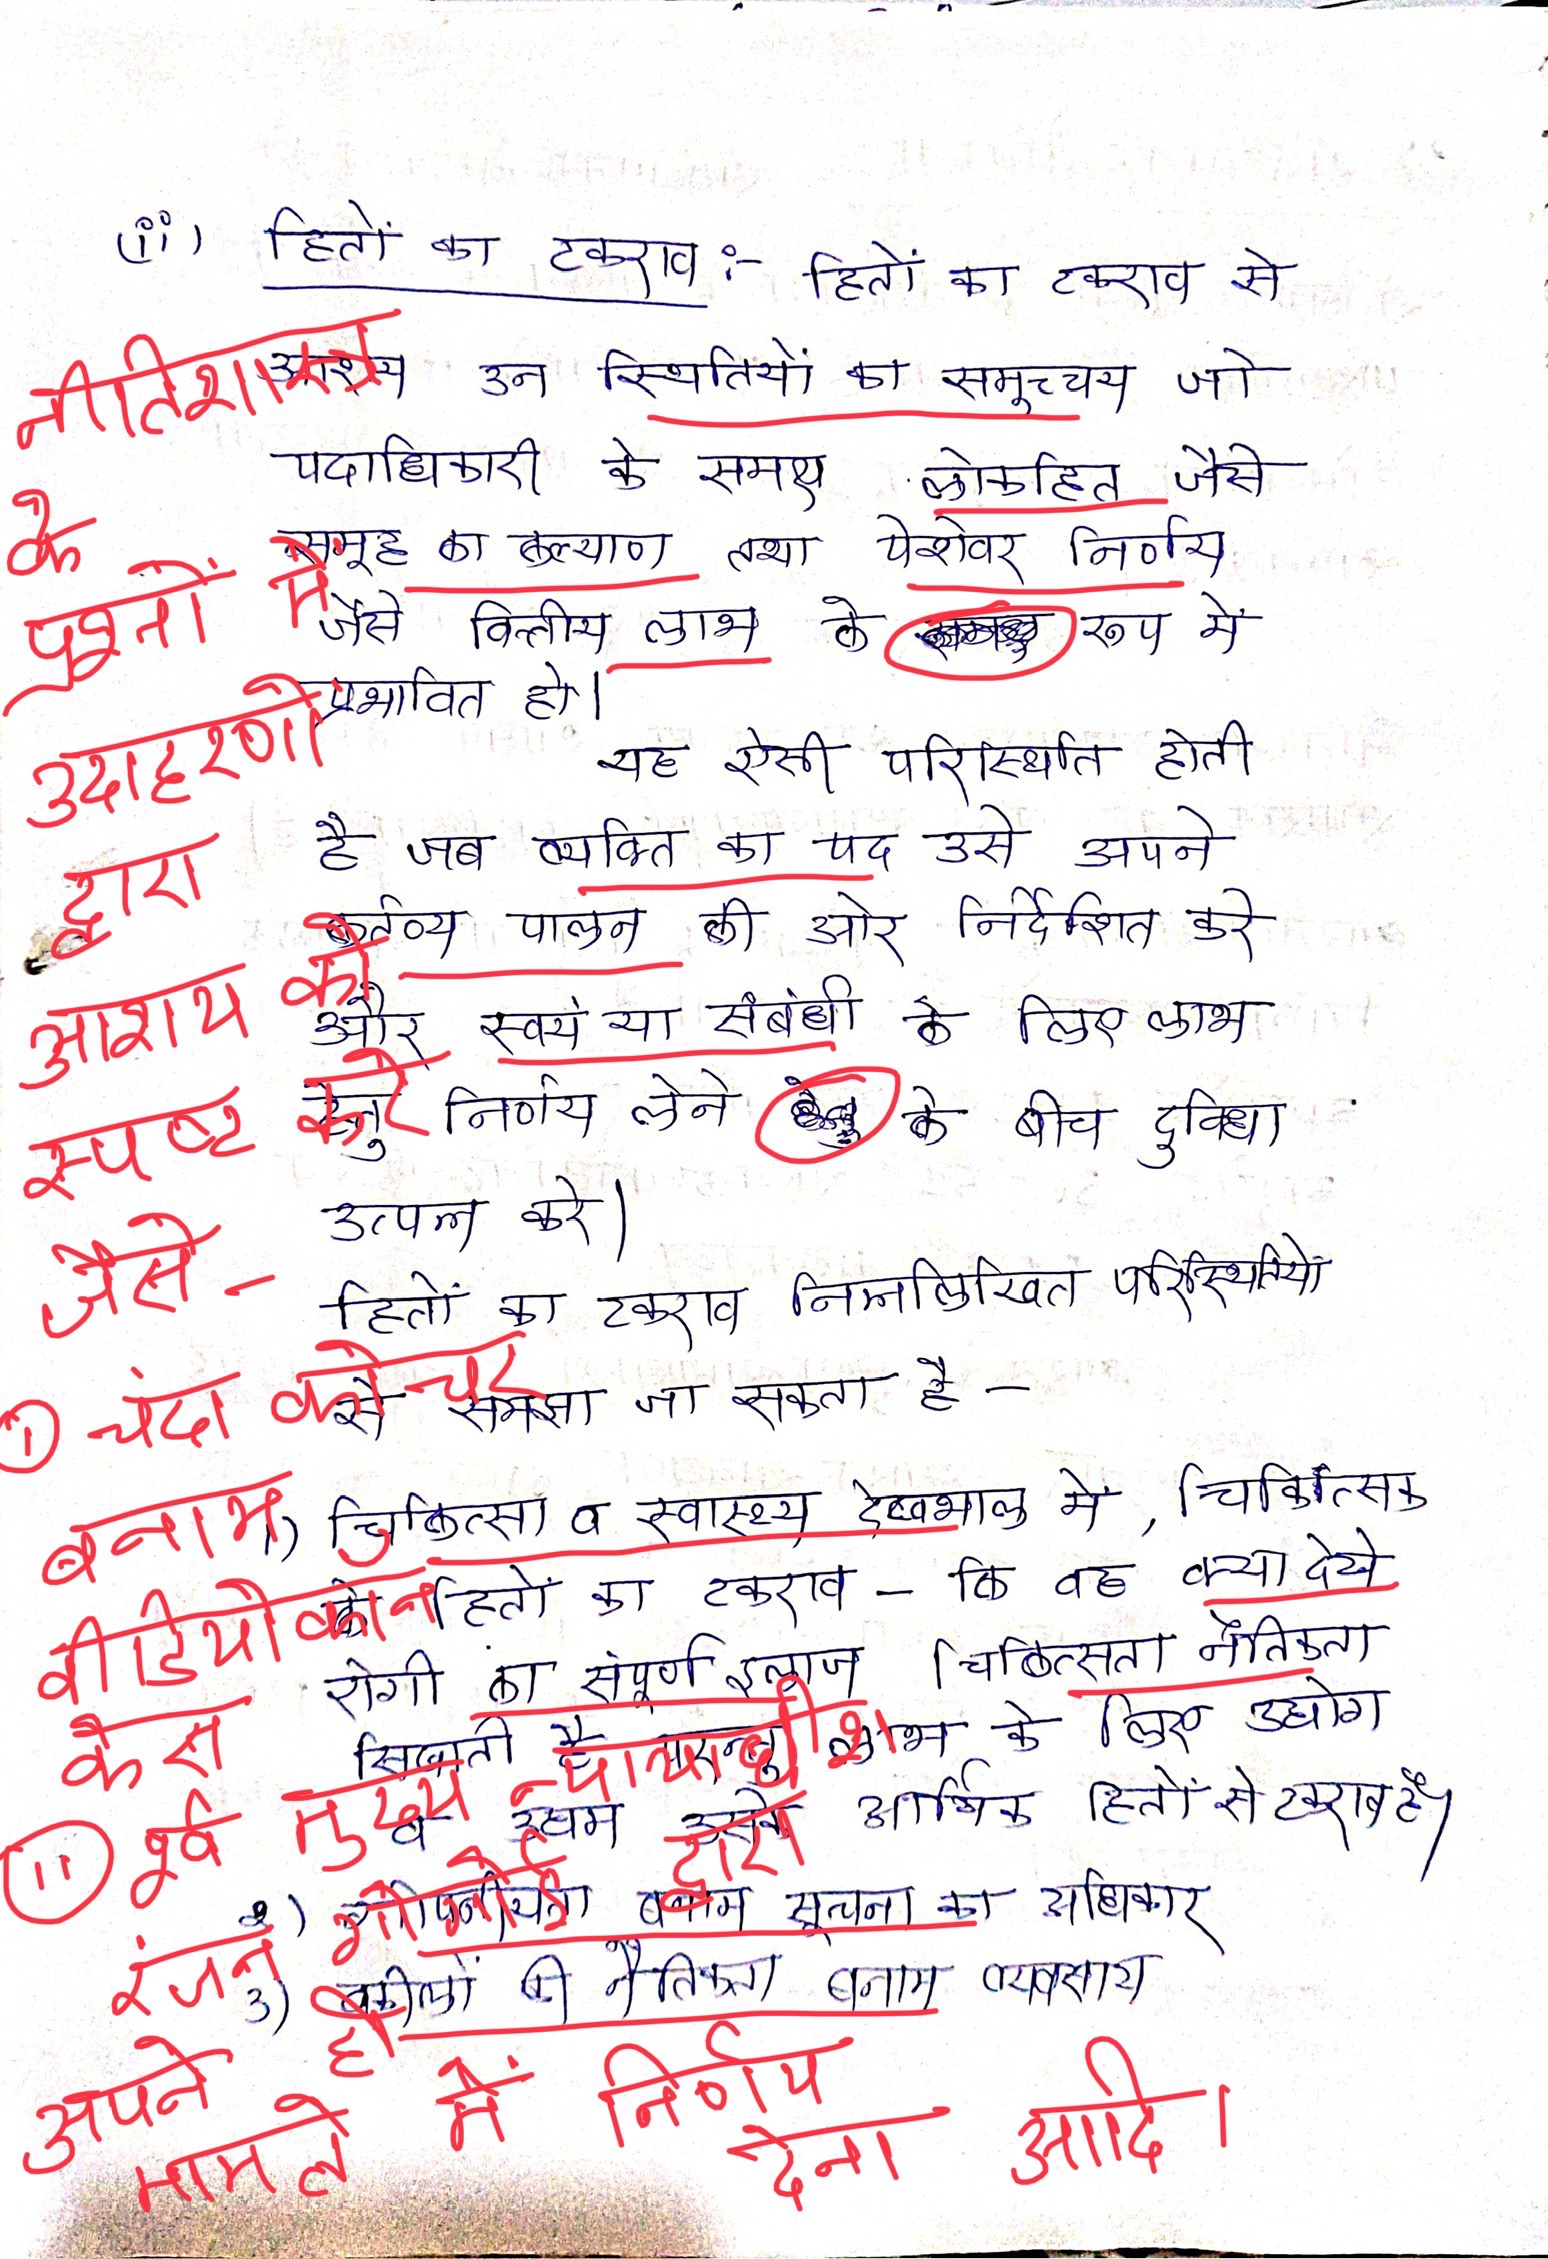 (ii) हितों का टकराव :- हितों का टकराव से
आशय उन स्थितियों का समूच्चय जो
पदाधिकारी के समक्ष लोकहित जैसे
समूह का कल्याण तथा पेशेवर निर्णय
जैसे वित्तीय लाभ के रूप में
प्रभावित हो।
यह ऐसी परिस्थिति होती
है जब व्यक्ति का पद उसे अपने
कर्तव्य पालन की ओर निर्देशित करे
और स्वयं या संबंधी के लिए लाभ
हेतु निर्णय लेने के बीच दुविधा
उत्पन्न करे।
हितों का टकराव निम्नलिखित परिस्थितियों
से समझा जा सकता है -
1) चिकित्सा व स्वास्थ्य देखभाल में, चिकित्सक
के हितों का टकराव - कि वह क्या देखे
रोगी का संपूर्ण इलाज चिकित्सता नैतिकता
सिखाती है परन्तु लाभ के लिए उद्योग
व उद्यम उसके आर्थिक हितों से टकराव है।
2) गोपनीयता बनाम सूचना का अधिकार
3) वकीलों की नैतिकता बनाम व्यवसाय
नीतिशास्त्र
के
प्रश्नों में
उदाहरणों
द्वारा
आशय को
स्पष्ट करें
जैसे -
(i) चंदा कोचर
बनाम
वीडियोकॉन
केस
(ii) पूर्व मुख्य न्यायाधीश
रंजन गोगोई द्वारा
अपने ही
मामले में निर्णय
देना आदि।